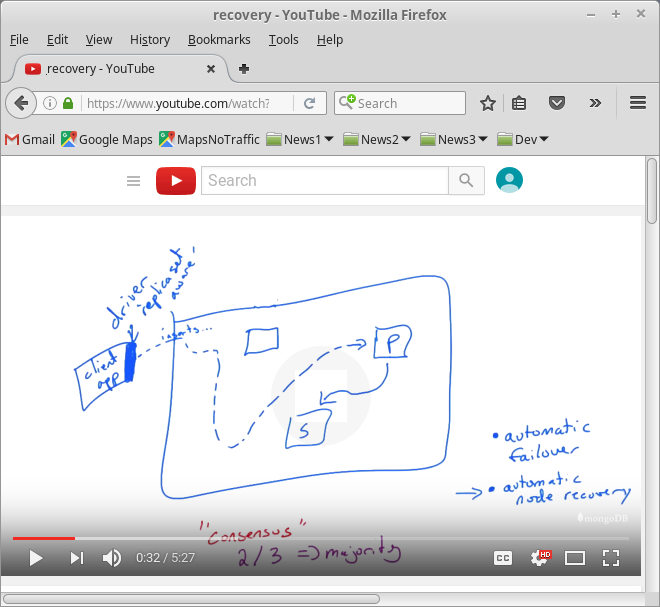 recovery - YouTube - Mozilla Firefox
File Edit View History Bookmarks Tools Help
recovery - YouTube
https://www.youtube.com/watch?
Search
Gmail Google Maps MapsNoTraffic News1 News2 News3 Dev
Search
driver
replica set
aware
inserts...
client
app
P
S
• automatic
failover
• automatic
node recovery
mongoDB
"Consensus"
2/3 => majority
0:32 / 5:27
CC
HD